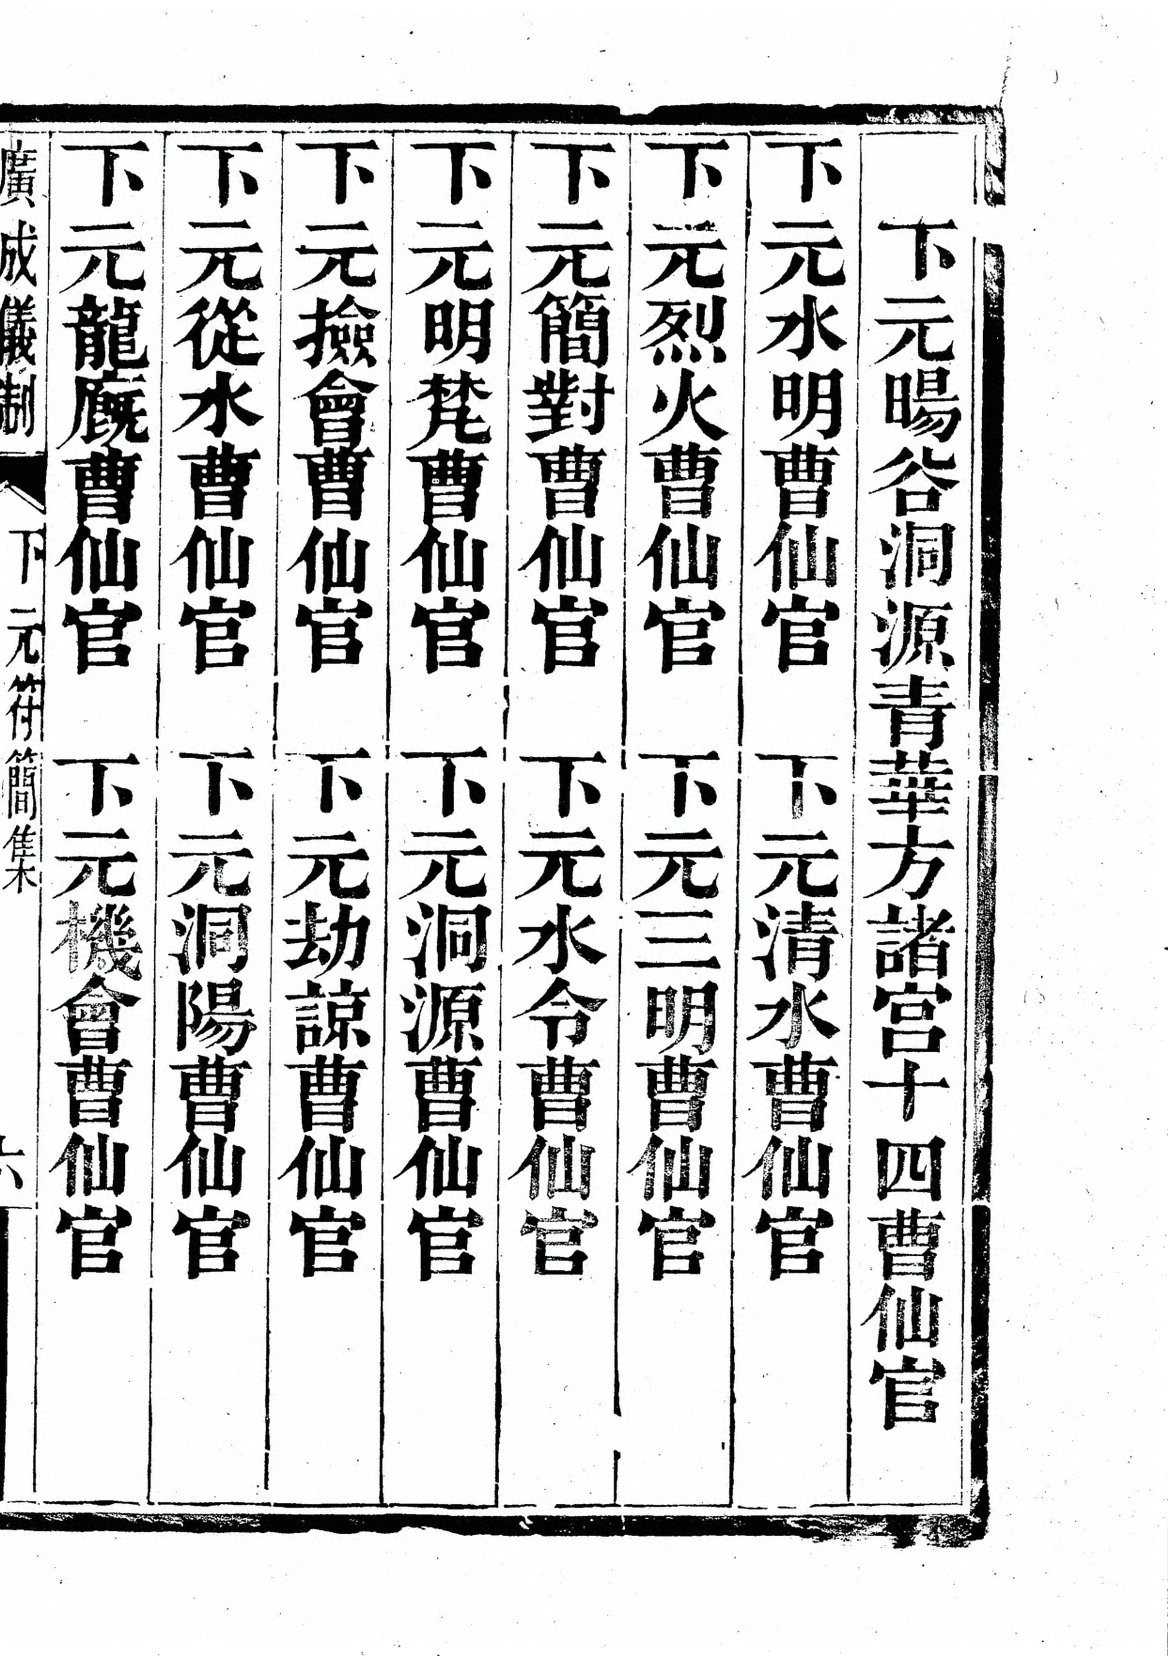 下元暘谷洞源青華方諸宮十四曹仙官
下元水明曹仙官　下元清水曹仙官
下元烈火曹仙官　下元三明曹仙官
下元簡對曹仙官　下元水令曹仙官
下元明梵曹仙官　下元洞源曹仙官
下元撿會曹仙官　下元劫諒曹仙官
下元從水曹仙官　下元洞陽曹仙官
下元龍廐曹仙官　下元機會曹仙官
廣成儀制　下元符簡集　六